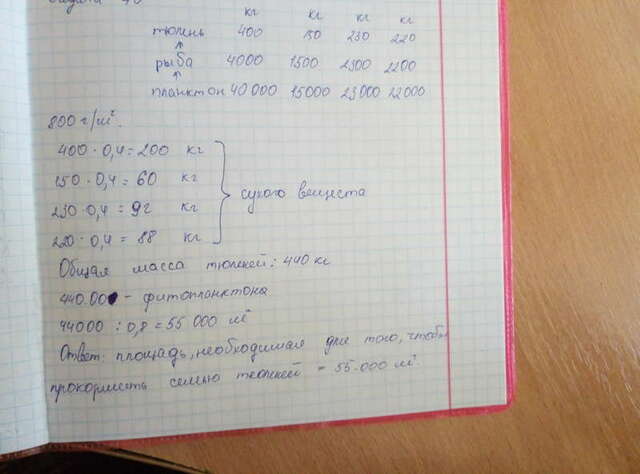 кг кг кг кг
тюлень 400 150 230 220
рыба 4000 1500 2300 2200
планктон 40 000 15000 23000 22000
800 г/м².
400 · 0,4 = 200 кг
150 · 0,4 = 60 кг
230 · 0,4 = 92 кг
220 · 0,4 = 88 кг
сухого вещества
Общая масса тюленей: 440 кг
440.00 - фитопланктона
44000 : 0,8 = 55 000 м²
Ответ: площадь, необходимая для того, чтобы
прокормить семью тюленей = 55.000 м².